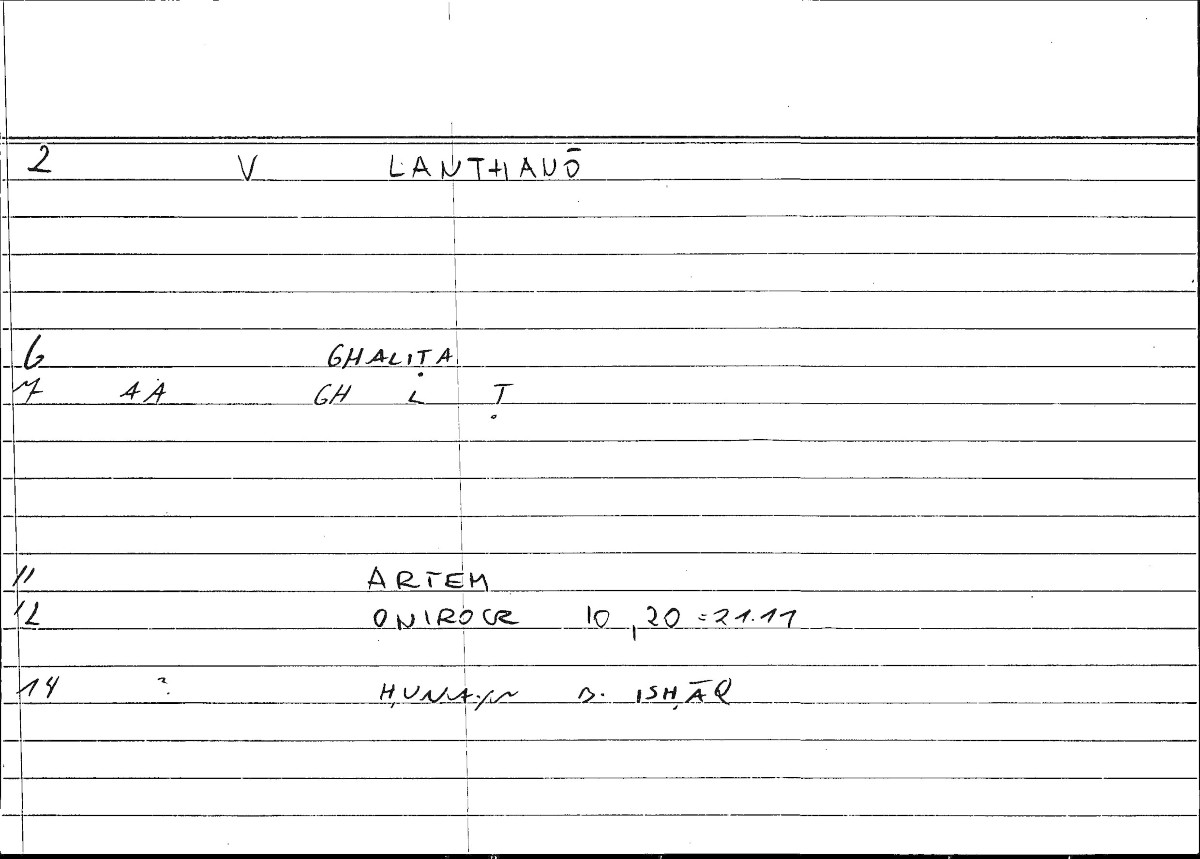 2 V LANTHANŌ
6 GHALIṬA
7 AA GH L Ṭ
11 ARTEM
12 ONIROCR 10,20 = 21.11
14 ? ḤUNAYN B. ISḤĀQ